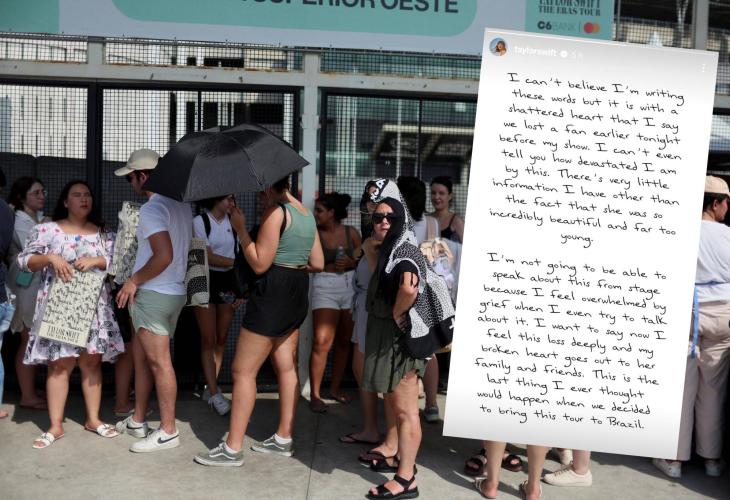 SUPERIOR OESTE
TAYLOR SWIFT
THE ERAS TOUR
C6BANK
taylorswift 5 h
I can't believe I'm writing
these words but it is with a
shattered heart that I say
we lost a fan earlier tonight
before my show. I can't even
tell you how devastated I am
by this. There's very little
information I have other than
the fact that she was so
incredibly beautiful and far too
young.
I'm not going to be able to
speak about this from stage
because I feel overwhelmed by
grief when I even try to talk
about it. I want to say now I
feel this loss deeply and my
broken heart goes out to her
family and friends. This is the
last thing I ever thought
would happen when we decided
to bring this tour to Brazil.
TAYLOR SWIFT